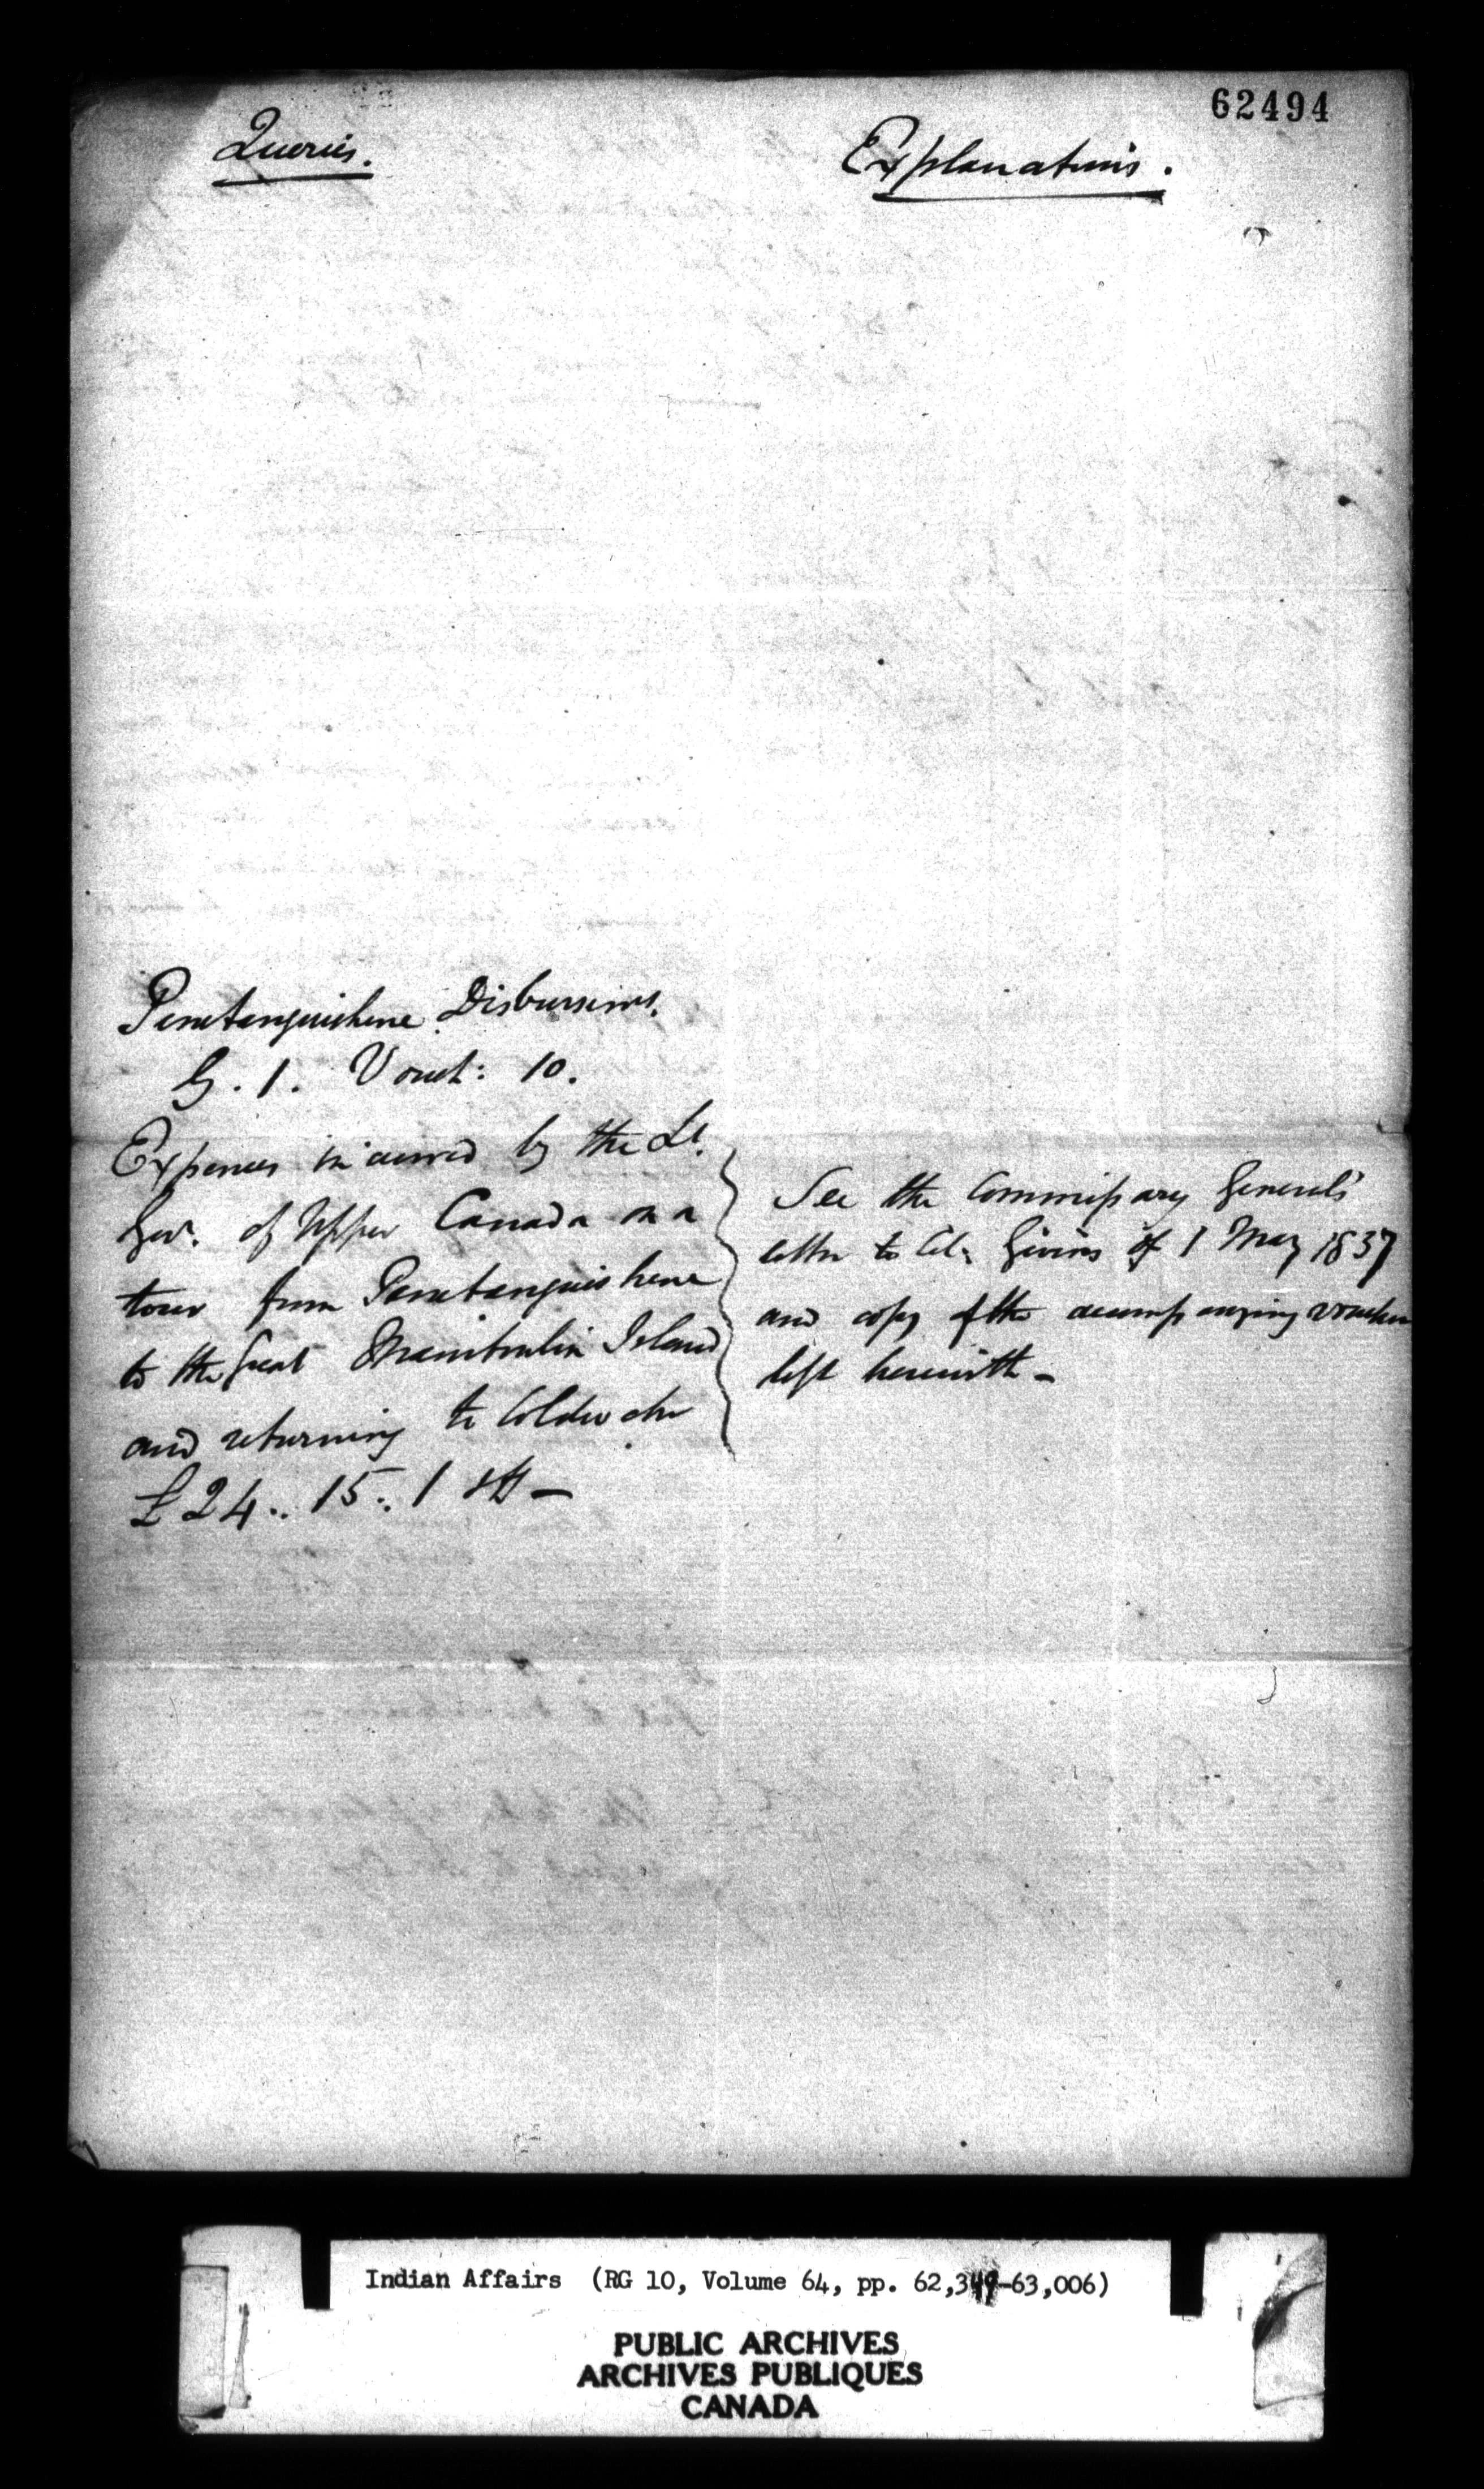 62494
Queries.
Explanations.
Penetanguishene Disbursemts.
G. 1. Vouch: 10.
Expenses incurred by the Lt.
Gov. of Upper Canada on a
tour from Penetanguishene
to the Great Manitoulin Island
and returning to Coldwater
£24.. 15.. 1 Stg –
See the Commissary General's
letter to Col. Givins of 1 May 1837
and copy of the accompanying voucher
left herewith –
Indian Affairs (RG 10, Volume 64, pp. 62,349-63,006)
PUBLIC ARCHIVES
ARCHIVES PUBLIQUES
CANADA